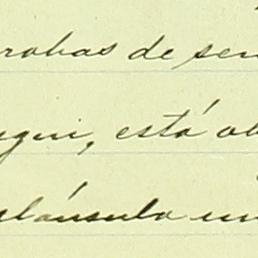 rrobas de sem
egui, está ob
cláusula un